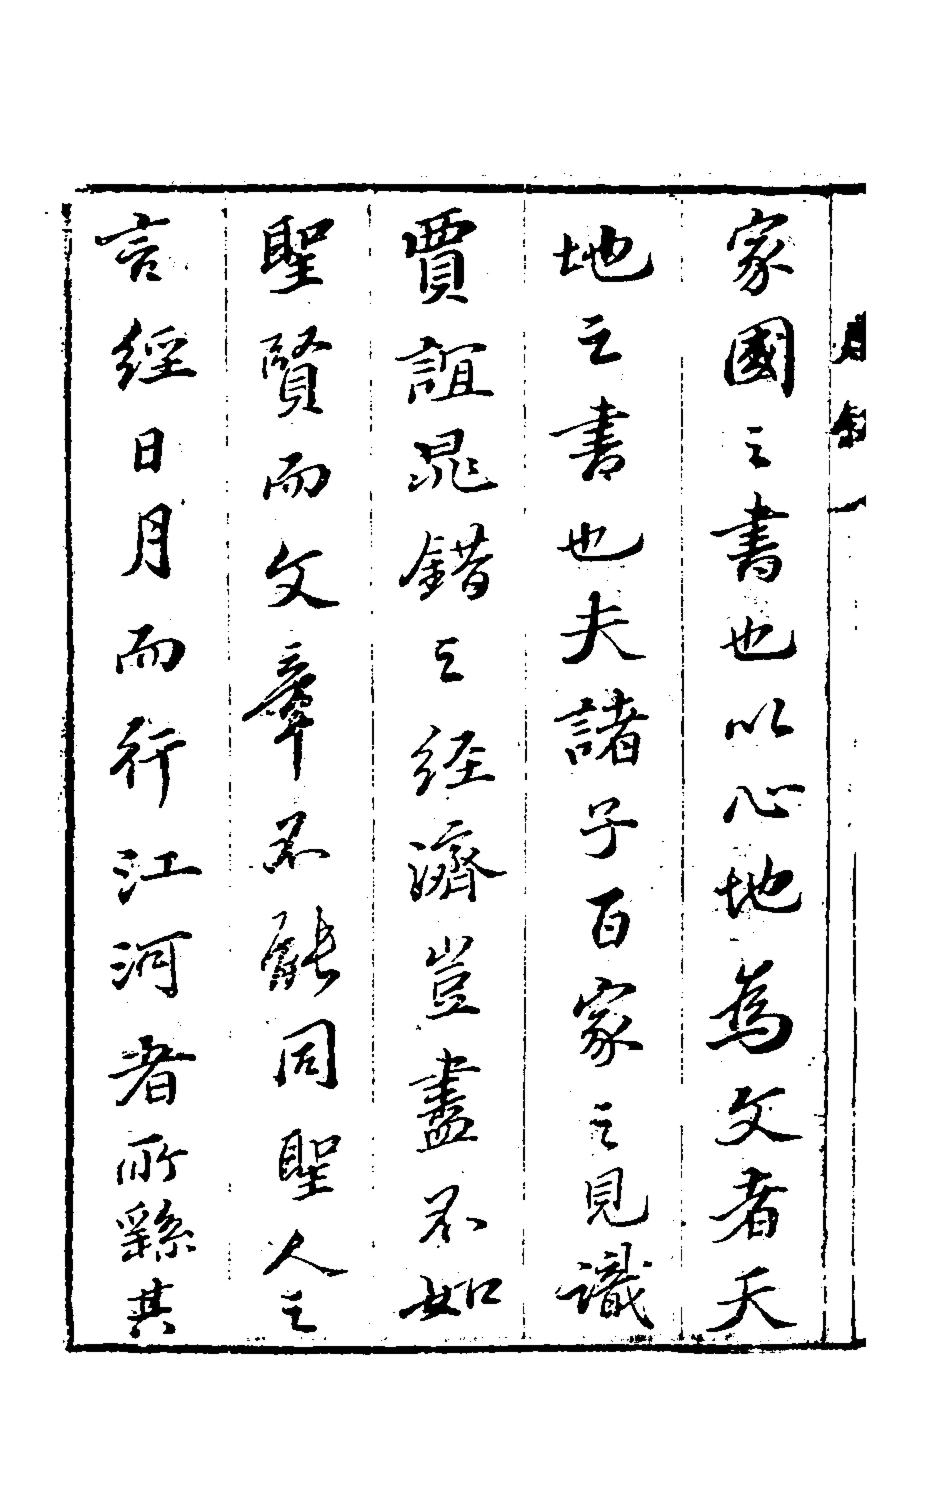 家國之書也以心地為文者天
地之書也夫諸子百家之見識
賈誼晁錯之経濟豈盡不如
聖賢而文章不能同聖人之
言經日月而行江河者所繇其